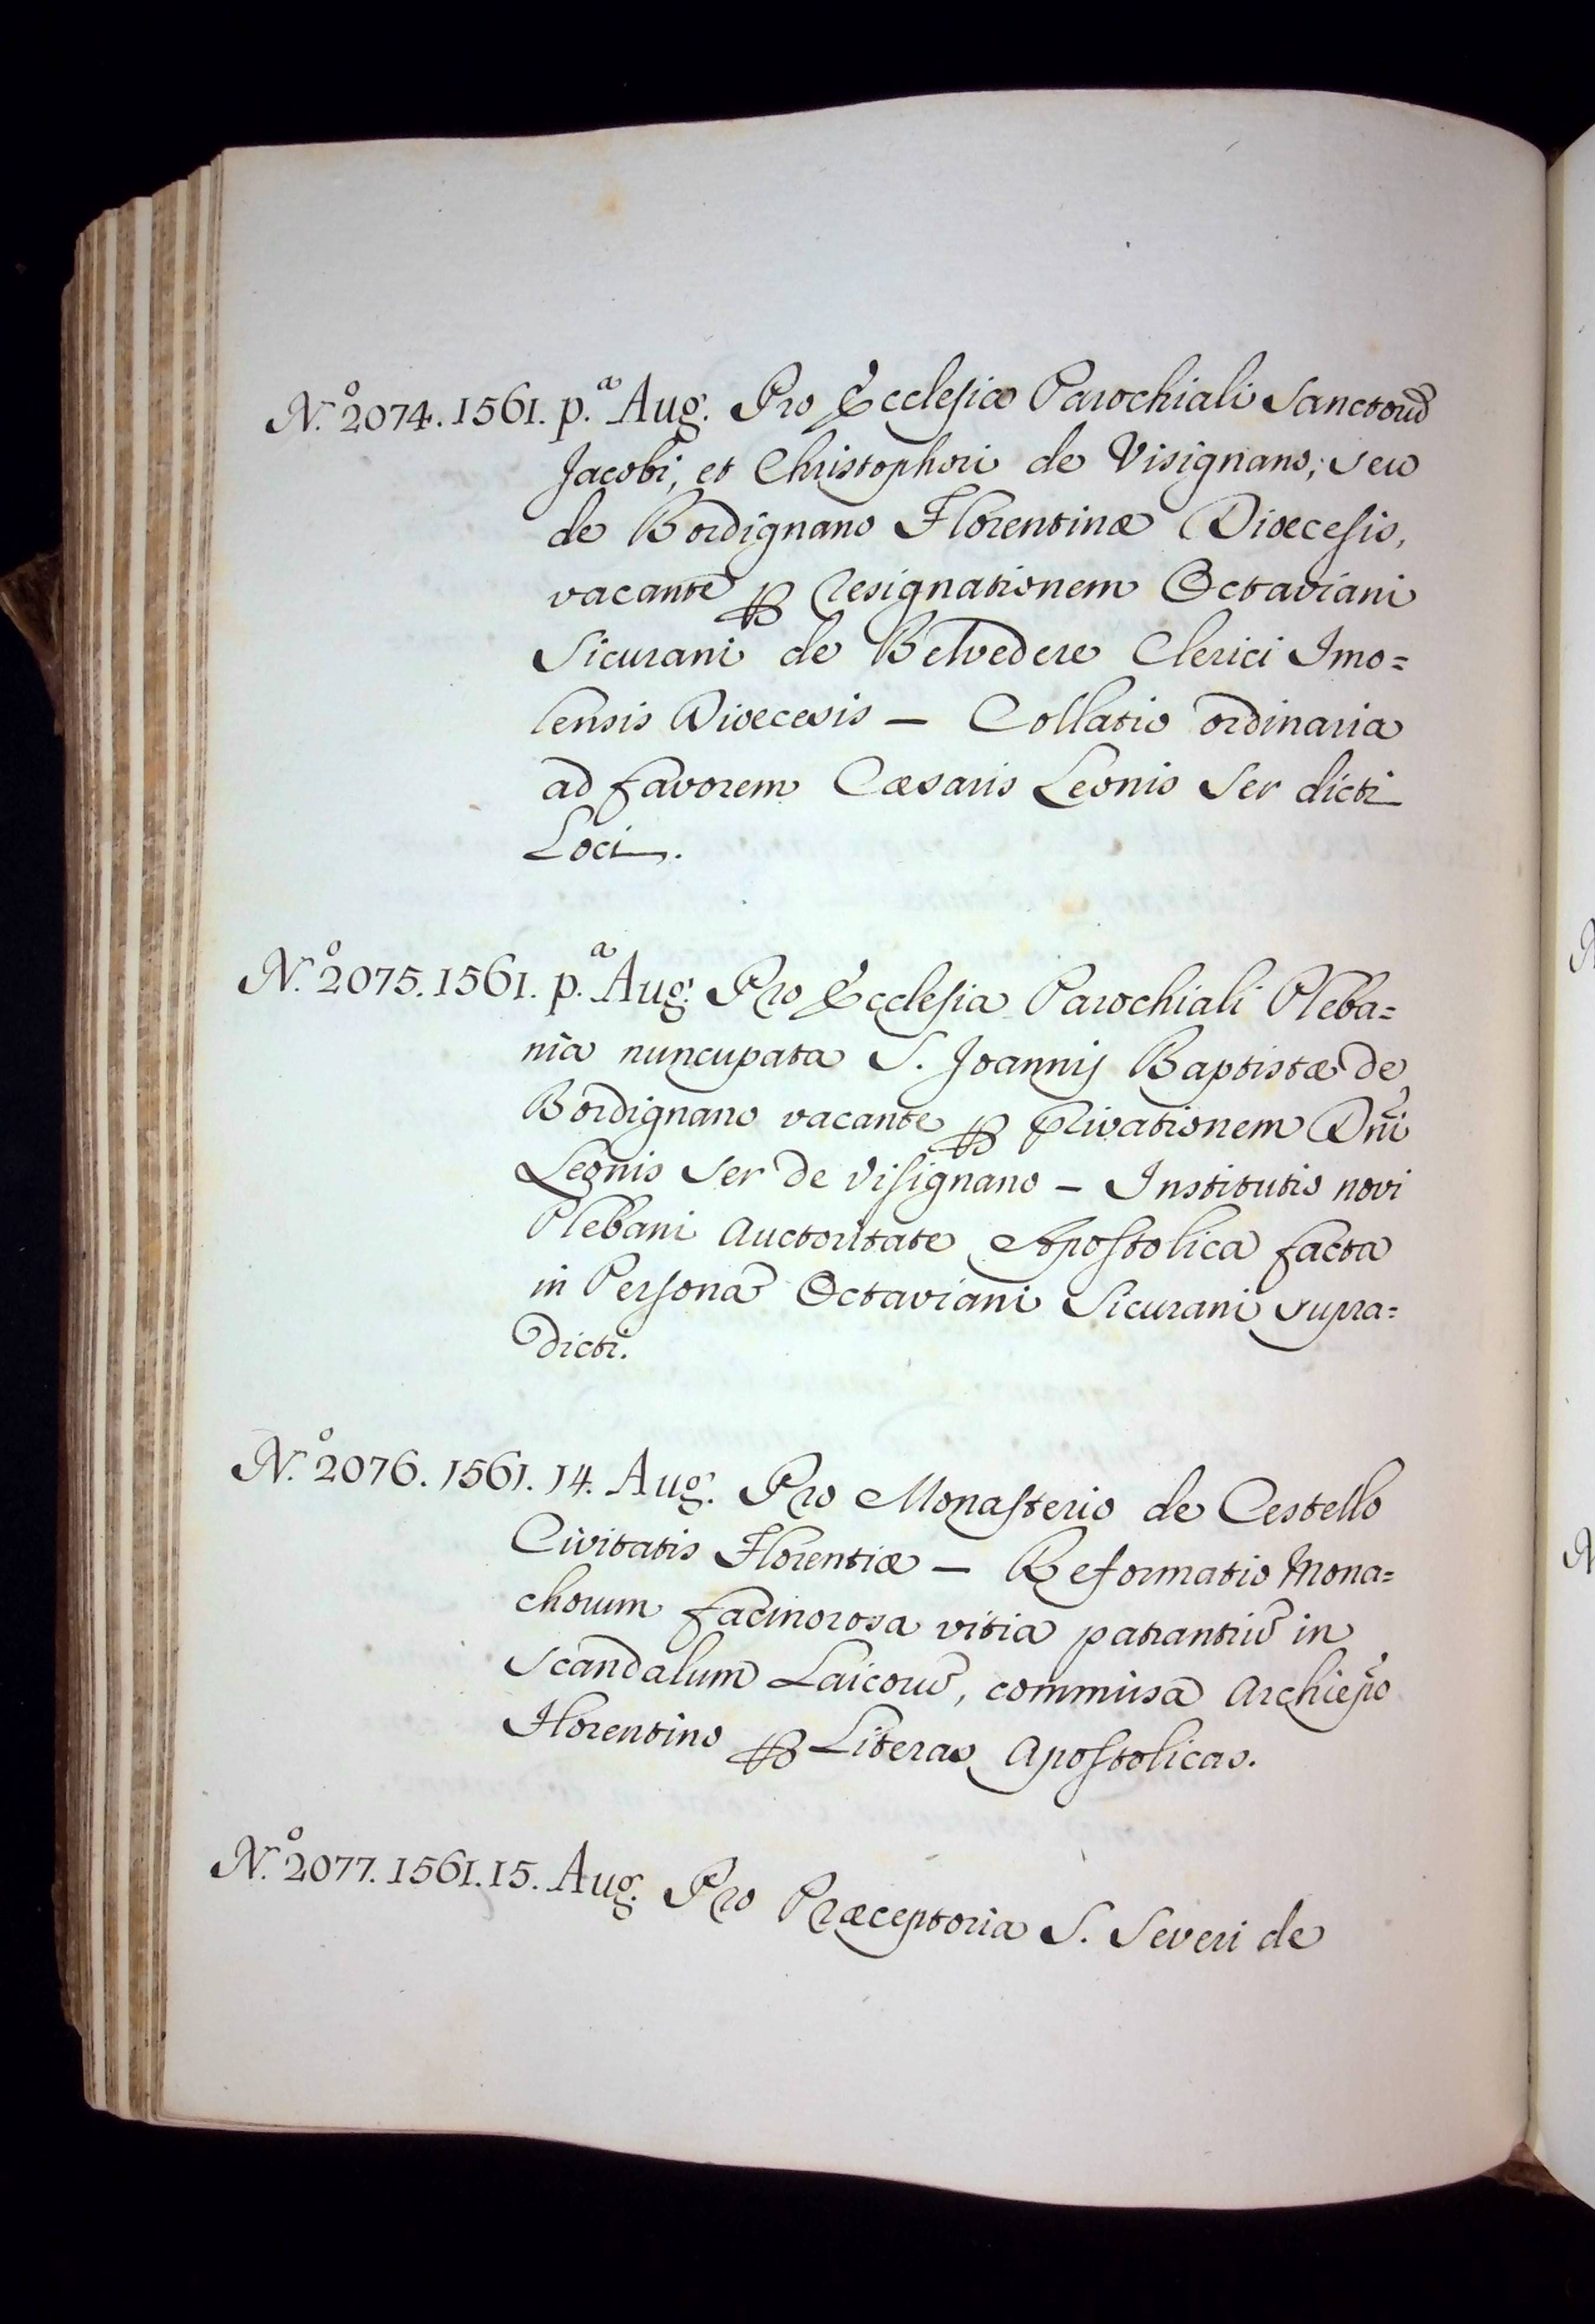 N.º 2074. 1561. p.ª Aug. Pro Ecclesiæ Parochiali Sanctorũ
Jacobi, et Christophori de Visignano; seu
de Bordignano Florentinæ Diœcesis,
vacante ꝑ resignationem Octaviani
Sicurani de Belvedere Clerici Imo=
lensis Diœcesis – Collatio ordinaria
ad favorem Cæsaris Leonis Ser dicti
Loci.
N.º 2075. 1561. p.ª Aug. Pro Ecclesia Parochiali Pleba=
nia nuncupata S. Joannis Baptistæ de
Bordignano vacante ꝑ privationem Dñi
Leonis Ser de Visignano – Institutio novi
Plebani Auctoritate Apostolica facta
in Personã Octaviani Sicurani supra=
dicti.
N.º 2076. 1561. 14. Aug. Pro Monasterio de Cestello
Civitatis Florentiæ – Reformatio Mona=
chorum facinorosa vitia patrantiũ in
Scandalum Laicorũ, commissa Archiep̃o
Florentino ꝑ Literas Apostolicas.
N.º 2077. 1561. 15. Aug. Pro Præceptoria S. Severi de